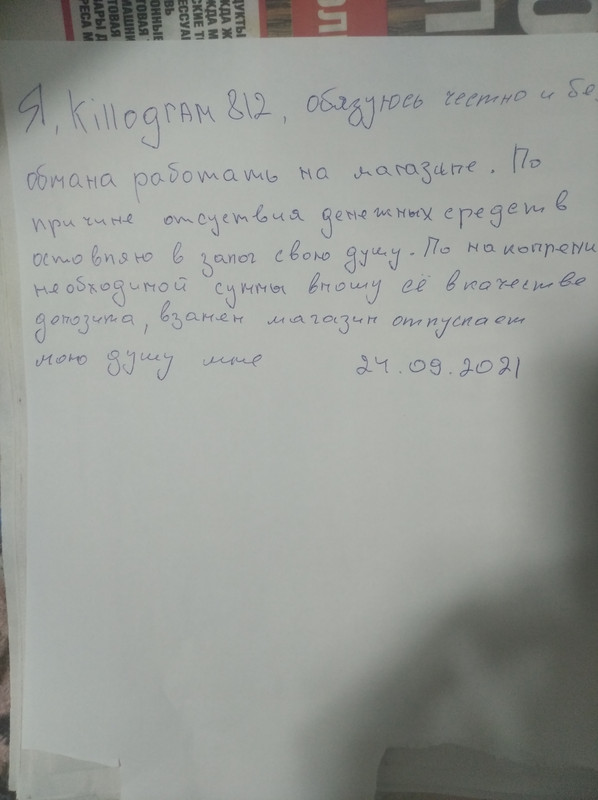 Я, KillogrAM 812, обязуюсь честно и без
обмана работать на магазине. По
причине отсуствия денежных средств
оставляю в залог свою душу. По накоплени
необходимой суммы вношу её в качестве
депозита, взамен магазин отпускает
мою душу мне 24.09.2021